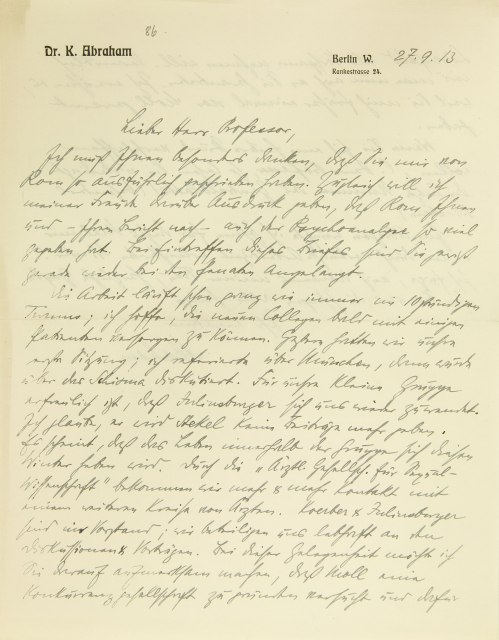 86
Dr. K. Abraham
Berlin W. 27.9.13
Rankestrasse 24.
Lieber Herr Professor,
Ich muß Ihnen besonders danken, daß Sie mir von
Rom so ausführlich geschrieben haben. Zugleich will ich
meiner Freude darüber Ausdruck geben, daß Rom Ihnen
und – Ihrem Bericht nach – auch der Psychoanalyse so viel
gegeben hat. Bei Eintreffen dieses Briefes sind Sie jetzt
gerade wieder bei den Penaten angelangt.
Die Arbeit läuft schon ganz wie immer im 10stündigen
Turnus; ich hoffe, die neuen Collegen bald mit einigen
Patienten versorgen zu können. Gestern hatten wir unsre
erste Sitzung; ich referierte über München, dann wurde
über das Schisma diskutiert. Für unsre kleine Gruppe
erfreulich ist, daß Juliusburger sich uns wieder zuwendet.
Ich glaube, er wird Stekel keine Beiträge mehr geben.
Es scheint, daß das Leben innerhalb der Gruppe sich diesen
Winter heben wird. Durch die „Ärztl. Gesellsch. für Sexual-
Wissenschaft" bekommen wir mehr & mehr Kontakt mit
einem weiteren Kreise von Ärzten. Koerber & Juliusburger
sind im Vorstand; wir beteiligen uns lebhaft an den
Diskussionen & Vorträgen. Bei dieser Gelegenheit möchte ich
Sie darauf aufmerksam machen, daß Moll eine
Konkurrenzgesellschaft zu gründen versucht und dafür